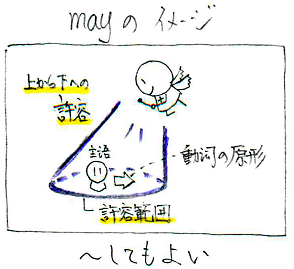 mayのイメージ
上から下への
許容
主語
動詞の原形
許容範囲
～してもよい